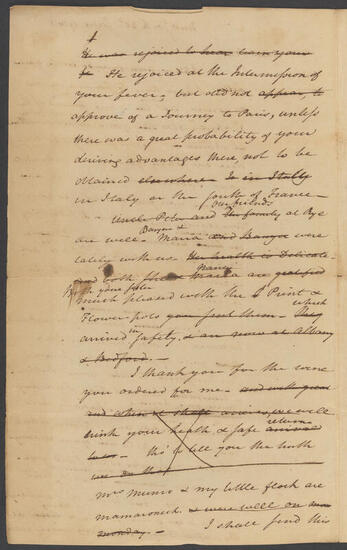 He was rejoiced to hear
He rejoiced at the Intermission of
your fever, but did not appear, to
approve of a Journey to Paris, unless
there was a great probability of your
deriving advantages there, not to be
obtained elsewhere in Italy
in Italy or the south of France —
our friends
Uncle Peter and The family at Rye
are well. Maria and Banyer were
Banyer &
lately with us. Her health is Delicate
and both Maria are gratified
Both your sister Nancy
much pleased with the Print &
Flower pots you sent them. They
which
arrived in safety, & are now at Albany
& Bedford. —
I thank you for the wine
you ordered for me. and will
and when it arrives, we will
drink your health & safe return
Tho' to tell you the truth
we
Mrs Munro & my little flock are
Mamaroneck & were well on
monday. — I shall send this